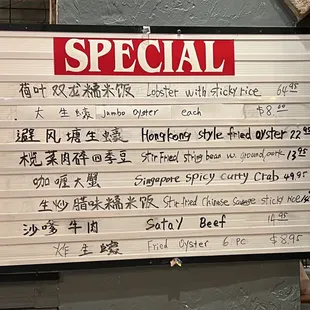 SPECIAL
荷叶双龙糯米饭 Lobster with sticky rice 64.95
大生蠔 Jumbo oyster each $8.00
避风塘生蠔 Hongkong style fried oyster 22.95
榄菜肉碎四季豆 Stir Fried string bean w. ground pork 13.95
咖喱大蟹 Singapore spicy curry Crab 49.95
生炒腊味糯米饭 Stir fried Chinese Sausage sticky rice
沙嗲牛肉 Satay Beef 14.95
炸生蠔 Fried Oyster 6 pc $8.95